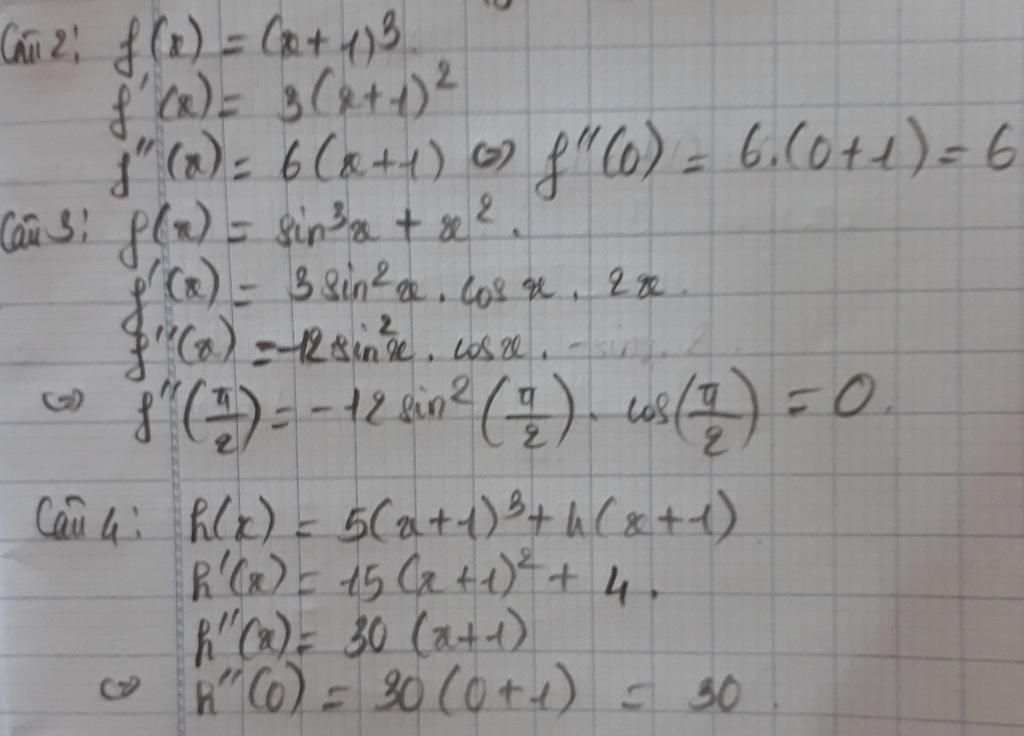 Câu 2: f(x) = (x+1)³.
f'(x) = 3(x+1)²
f''(x) = 6(x+1) ⇔ f''(0) = 6.(0+1) = 6
Câu 3: f(x) = sin³x + x².
f'(x) = 3sin²x . cosx . 2x.
f''(x) = -12sin²x . cosx .
⇔ f''(π/2) = -12sin²(π/2) . cos(π/2) = 0.
Câu 4: h(x) = 5(x+1)³ + 4(x+1)
h'(x) = 15(x+1)² + 4.
h''(x) = 30(x+1)
⇔ h''(0) = 30(0+1) = 30.